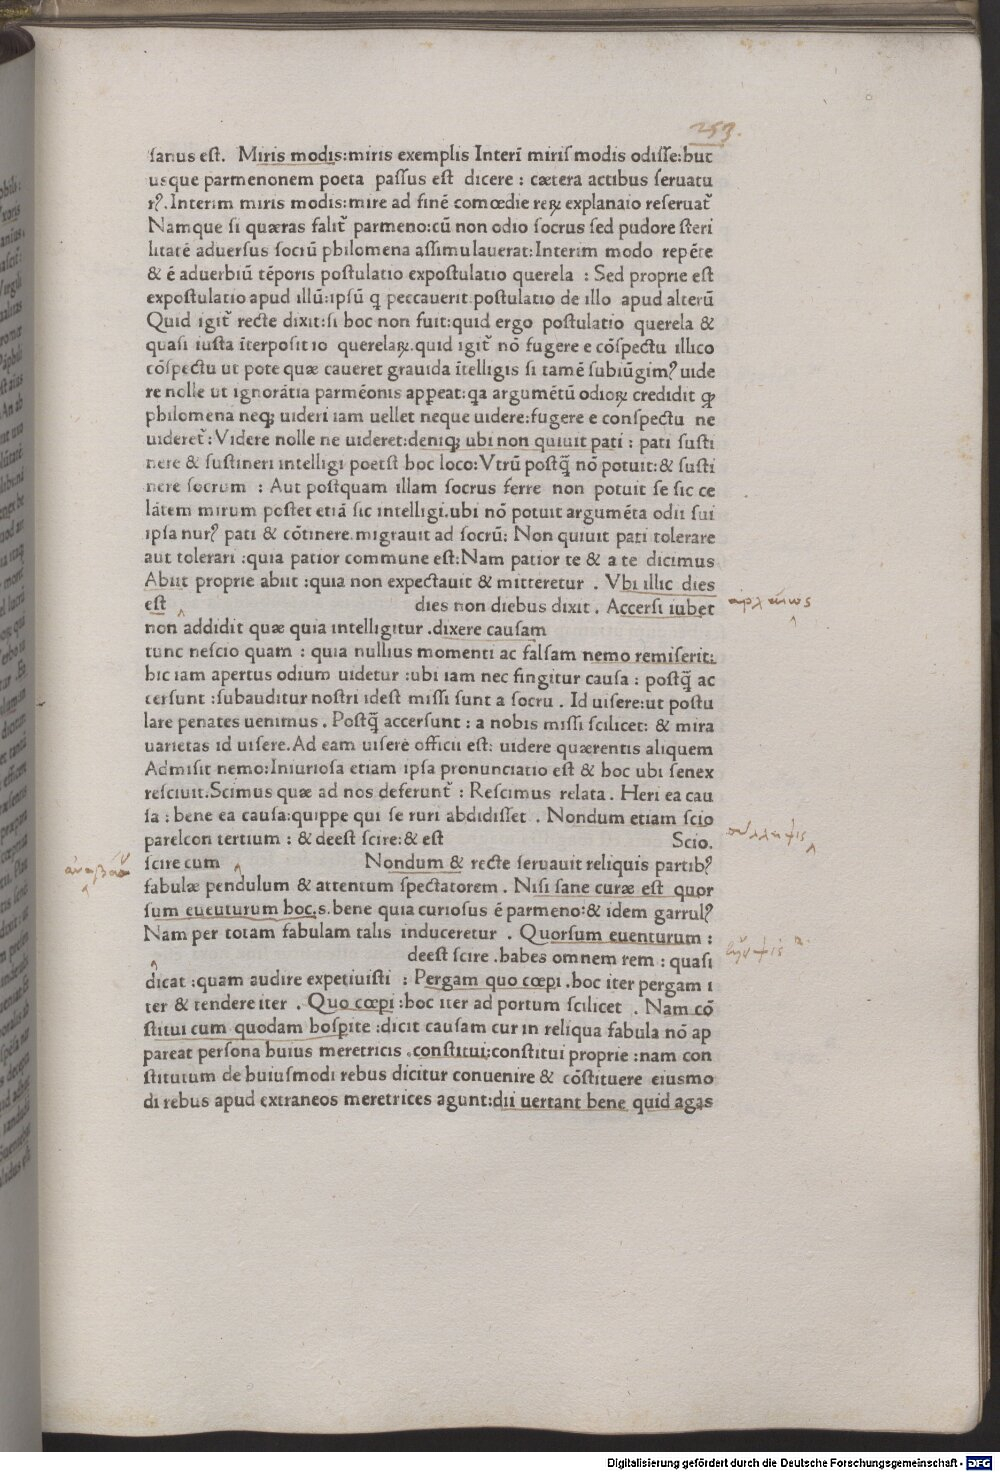 253.
ſanus eſt. Miris modis:miris exemplis Interī miriſ modis odiſſe:huc
uſque parmenonem poeta paſſus eſt dicere : cætera actibus ſeruatu
rꝰ.Interim miris modis:mire ad finē comœdie reꝝ explanaio reſeruat᷑
Namque ſi quæras falit᷑ parmeno:cū non odio ſocrus ſed pudore ſteri
litatē aduerſus ſocrū philomena aſſimulauerat:Interim modo repēte
& ē aduerbiū tēporis poſtulatio expoſtulatio querela : Sed proprie eſt
expoſtulatio apud illū:ipſū q peccauerit poſtulatio de illo apud alterū
Quid igit᷑ recte dixit:ſi hoc non fuit:quid ergo poſtulatio querela &
quaſi iuſta īterpoſitio querelaꝝ.quid igit᷑ nō fugere e cōſpectu illico
cōſpectu ut pote quæ caueret grauida ītelligis ſi tamē ſubiūgimꝰ uide
re nolle ut ignorātia parmēonis appeat:qa argumētū odioꝝ credidit ꝙ
philomena neqꝫ uideri iam uellet neque uidere:fugere e conſpectu ne
uideret᷑:Videre nolle ne uideret:deniqꝫ ubi non quiuit pati : pati ſuſti
nere & ſuſtineri intelligi poetſt hoc loco:Vtrū poſtq̄ nō potuit:& ſuſti
nere ſocrum : Aut poſtquam illam ſocrus ferre non potuit ſe ſic ce
lātem mirum poſtet etiā ſic intelligi.ubi nō potuit argumēta odii ſui
ipſa nurꝰ pati & cōtinere.migrauit ad ſocrū: Non quiuit pati tolerare
aut tolerari :quia patior commune eſt:Nam patior te & a te dicimus
Abiit proprie abiit :quia non expectauit & mitteretur . Vbi illic dies
eſt dies non diebus dixit . Accerſi iubet
non addidit quæ quia intelligitur .dixere cauſam
tunc neſcio quam : quia nullius momenti ac falſam nemo remiſerit:
hic iam apertus odium uidetur :ubi iam nec fingitur cauſa : poſtq̄ ac
cerſunt :ſubauditur noſtri ideſt miſſi ſunt a ſocru . Id uiſere:ut poſtu
lare penates uenimus . Poſtq̄ accerſunt : a nobis miſſi ſcilicet: & mira
uarietas id uiſere.Ad eam uiſere officii eſt: uidere quærentis aliquem
Admiſit nemo:Iniurioſa etiam ipſa pronunciatio eſt & hoc ubi ſenex
reſciuit.Scimus quæ ad nos deferunt᷑ : Reſcimus relata . Heri ea cau
ſa : bene ea cauſa:quippe qui ſe ruri abdidiſſet . Nondum etiam ſcio
parelcon tertium : & deeſt ſcire:& eſt Scio.
ſcire cum Nondum & recte ſeruauit reliquis partibꝰ
fabulæ pendulum & attentum ſpectatorem . Niſi ſane curæ eſt quor
ſum eueuturum hoc.s.bene quia curioſus ē parmeno:& idem garrulꝰ
Nam per totam fabulam talis induceretur . Quorſum euenturum :
deeſt ſcire .habes omnem rem : quaſi
dicat :quam audire expetiuiſti : Pergam quo cœpi .hoc iter pergam i
ter & tendere iter . Quo cœpi :hoc iter ad portum ſcilicet . Nam cō
ſtitui cum quodam hoſpite :dicit cauſam cur in reliqua fabula nō ap
pareat perſona huius meretricis .conſtitui:conſtitui proprie :nam con
ſtitutum de huiuſmodi rebus dicitur conuenire & cōſtituere eiusmo
di rebus apud extraneos meretrices agunt:dii uertant bene quid agas
Digitalisierung gefördert durch die Deutsche Forschungsgemeinschaft - DFG